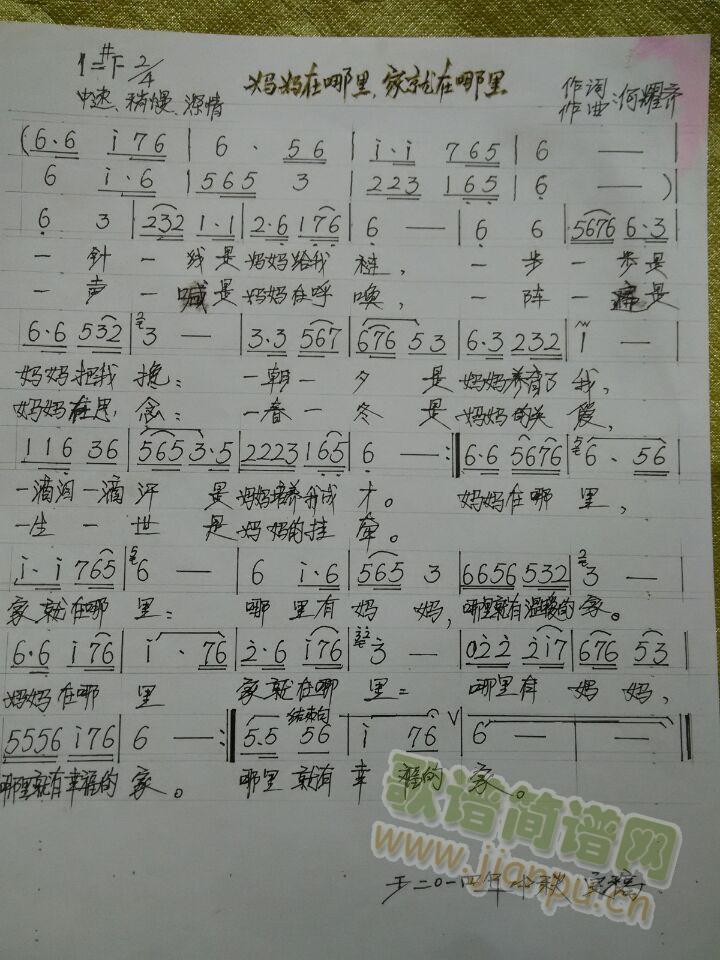 1=#F 2/4
妈妈在哪里,家就在哪里
中速、稍慢、深情
作词
作曲:何耀齐
(6·6 i76 | 6 · 56 | i·i 765 | 6 — |
6 i·6 | 565 3 | 223 165 | 6 — )
6 3 | 232 1·1 | 2·6 176 | 6 — | 6 6 | 5676 6·3 |
一 针 一 线是妈妈给我 , 一 步 一 步是
一 声 一 喊是妈妈在呼 唤, 一 阵 一 是
6·6 532 | 3 — | 3·3 567 | 676 53 | 6·3 232 | i — |
妈妈把我 挽; 一朝一 夕 是 妈妈养育了 我,
妈妈在思 念; 一春一 冬 是 妈妈的关 爱,
116 36 | 565 3·5 | 2223 165 | 6 — :| 6·6 5676 | 6·56 |
一滴泪一滴 汗 是 妈妈培养我成 才。 妈妈在哪 里,
一生 一 世 是 妈妈的挂 牵。
i·i 765 | 6 — | 6 i·6 | 565 3 | 6656 532 | 3 — |
家就在哪 里; 哪 里有 妈 妈, 哪里就有温暖的 家。
6·6 i76 | i · 76 | 2·6 i76 | 3 — | 022 2i7 | 676 53 |
妈妈在哪 里 家就在哪 里; 哪里有 妈 妈,
5556 i76 | 6 — :| 5·5 56 | i 76 V| 6 — | — ||
结束句
哪里就有幸福的 家。 哪里 就有 幸 福的 家。
歌谱简谱网
www.jianpu.cn
于二〇一四年中秋 定稿